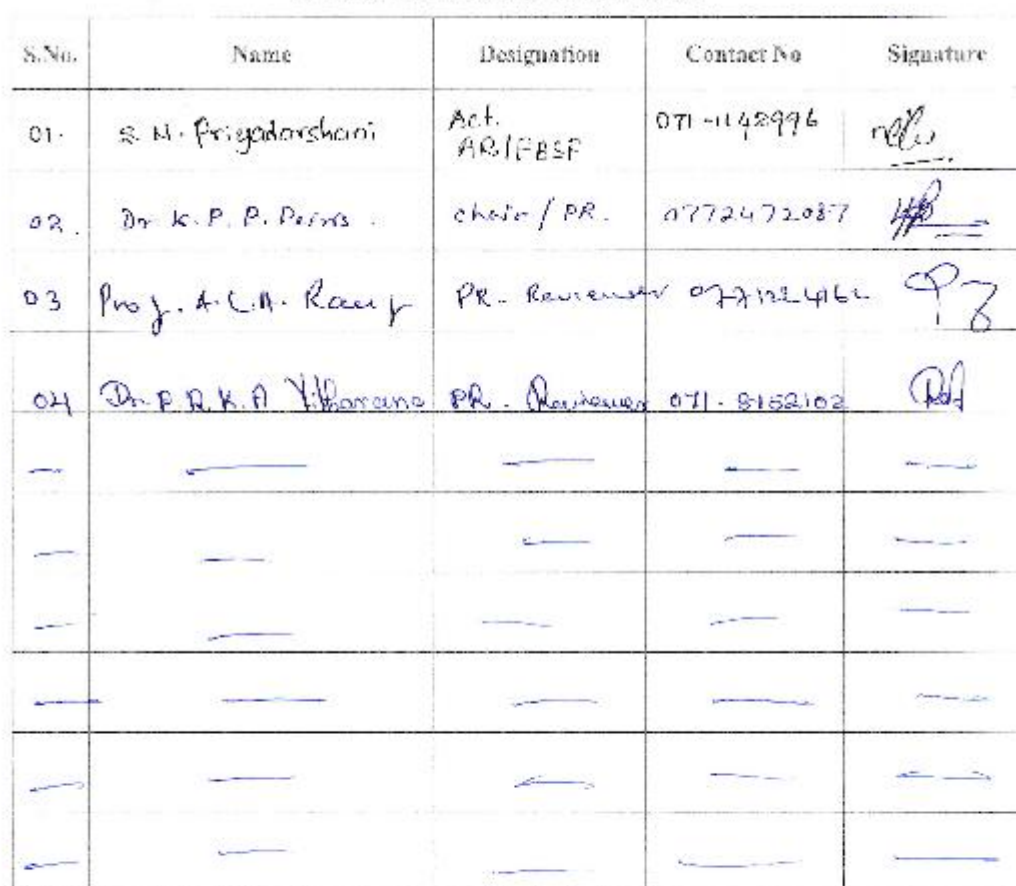 S.No. Name Designation Contact No Signature
01. S. N. Priyadarshani Act. 071-1142996
AR/FBSF
02. Dr K. P. P. Peiris. chair / PR. 0772472087
03 Prof. A. L. A. Rauf PR. Reviewer
04 Dr. P. R. K. A Vitharana PR. Reviewer 071-8152102